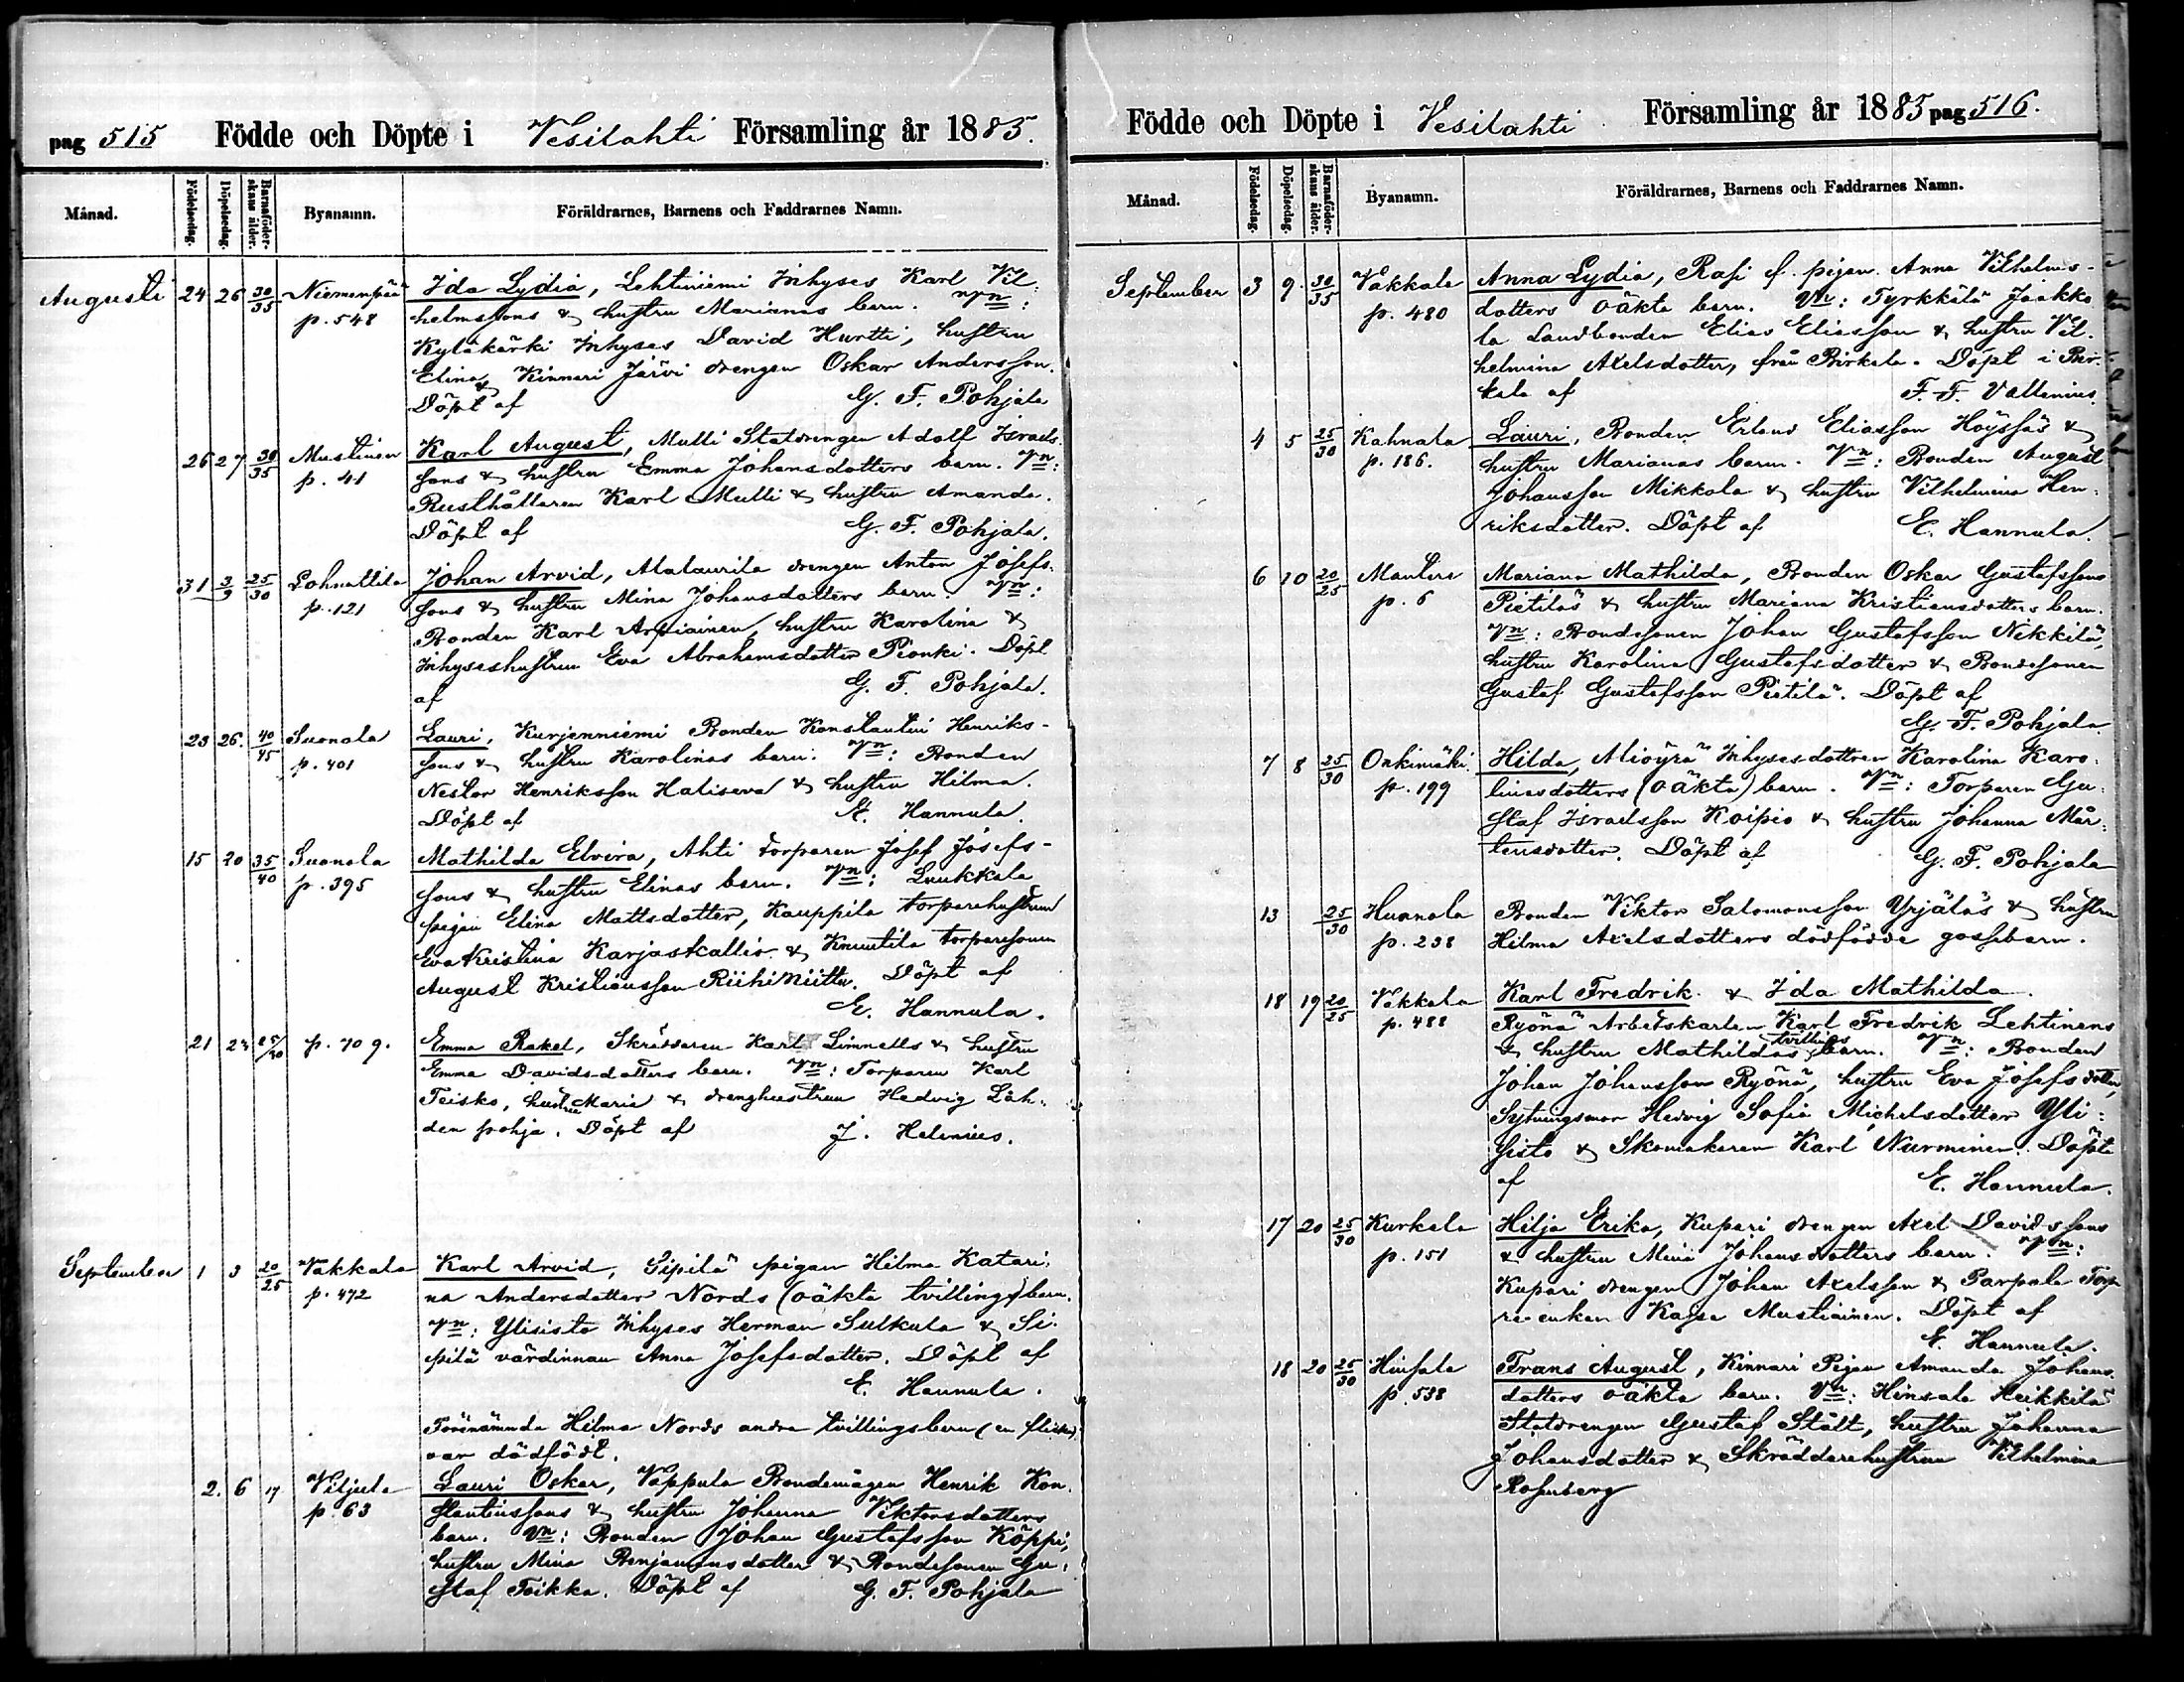 pag 515 Födde och Döpte i Vesilahti Församling år 1885.
Månad.
Födelsedag.
Döpelsedag.
Barnaföder-
skans ålder.
Byanamn.
Föräldrarnes, Barnens och Faddrarnes Namn.
Augusti 24 26 30/35 Niemenpää Ida Lydia, Lehtiniemi Inhyses Karl Vil-
p. 548 helmssons & hustru Marianas barn. Vn:
Kyläkärki Inhyses David Hurtti, hustru
Elina & Kinnari Järvi drengen Oskar Andersson.
Döpt af G. F. Pohjala
26 27 30/35 Mustinen Karl August, Mulli Statdrengen Adolf Israels-
p. 41 sons & hustru Emma Johansdotters barn. Vn:
Rusthållaren Karl Mulli & hustru Amanda.
Döpt af G. F. Pohjala.
31 3/9 25/30 Lohnattila Johan Arvid, Alalaurila drengen Anton Josefs-
p. 121 sons & hustru Mina Johansdotters barn. Vn:
Bonden Karl Arpiainen, hustru Karolina &
Inhyseshustrun Eva Abrahamsdotter Pionki. Döpt
af G. F. Pohjala.
23 26. 40/45 Suonola Lauri, Kurjenniemi Bonden Konstantin Henriks-
p. 401 sons & hustru Karolinas barn. Vn: Bonden
Nestor Henriksson Haliseva & hustru Hilma.
Döpt af E. Hannula.
15 20 35/40 Suonola Mathilda Elvira, Ahti torparen Josef Josefs-
p. 395 sons & hustru Elinas barn. Vn: Laukkala
pigan Elina Mattsdotter, Kauppila torparehustrun
Eva Kristina Karjaskallio & Knuutila torparesonen
August Kristiansson Riihiniitty. Döpt af
E. Hannula.
21 24 25/30 p. 709. Emma Rakel, Skräddaren Karl Limnells & hustru
Emma Davidsdotters barn. Vn: Torparen Karl
Teisko, hustru Maria & drenghustrun Hedvig Läh-
denpohja. Döpt af J. Helenius.
September 1 3 20/25 Vakkala Karl Arvid, Sipilä pigan Hilma Katari-
p. 472 na Andersdotter Nords (oäkta tvillings) barn.
Vn: Ylisisto Inhyses Herman Sulkula & Si-
pilä värdinnan Anna Josefsdotter. Döpt af
E. Hannula.
Förenämnda Hilma Nords andra tvillingsbarn (en flicka)
var dödfödt.
2. 6 17 Viljula Lauri Oskar, Vappula Bondemågen Henrik Kon-
p. 63 stantinssons & hustru Johanna Viktorsdotters
barn. Vn: Bonden Johan Gustafsson Köppi,
hustru Mina Benjaminsdotter & Bondesonen Gu-
staf Toikka. Döpt af G. F. Pohjala
Födde och Döpte i Vesilahti Församling år 1885 pag 516.
Månad.
Födelsedag.
Döpelsedag.
Barnaföder-
skans ålder.
Byanamn.
Föräldrarnes, Barnens och Faddrarnes Namn.
September 3 9. 30/35 Vakkala Anna Lydia, Rasi f. pigan Anna Vilhelms-
p. 480 dotters oäkta barn. Vn: Tyrkkälä Jaakko-
la Landbonden Elias Eliasson & hustru Vil-
helmina Axelsdotter, från Birkala. Döpt i Bir-
kala af F. F. Vallenius.
4 5 25/30 Kahnala Lauri, Bonden Erland Eliasson Höyssäs &
p. 186. hustru Marianas barn. Vn: Bonden August
Johansson Mikkola & hustru Vilhelmina Hen-
riksdotter. Döpt af E. Hannula.
6 10 20/25 Mantere Mariana Mathilda, Bonden Oskar Gustafssons
p. 6 Pietiläs & hustru Mariana Kristiansdotters barn.
Vn: Bondesonen Johan Gustafsson Nekkilä,
hustru Karolina Gustafsdotter & Bondesonen
Gustaf Gustafsson Pietilä. Döpt af
G. F. Pohjala
7 8 25/30 Onkimäki Hilda, Inhysesdottren Karolina Karo-
p. 199 linasdotters (oäkta) barn. Vn: Torparen Gu-
staf Israelsson Koipio & hustru Johanna Mår-
tensdotter. Döpt af G. F. Pohjala
13 25/30 Hunnola Bonden Viktor Salomonsson Yrjäläs & hustru
p. 238 Hilma Axelsdotters dödfödde gossebarn.
18 19 20/25 Vakkala Karl Fredrik & Ida Mathilda.
p. 488 Ryönä Arbetskarlen Karl Fredrik Lehtinens
& hustru Mathildas tvillings barn. Vn: Bonden
Johan Johansson Ryönä, hustru Eva Josefsdotter,
Sytningsmor Hedvig Sofia Michelsdotter Yli-
sisto & Skomakaren Karl Nurminen. Döpte
af E. Hannula.
17 20 25/30 Kurkela Hilja Erika, Kupari drengen Axel Davidssons
p. 151 & hustru Mina Johansdotters barn. Vn:
Kupari drengen Johan Axelsson & Parpala Torpa-
re enkan Kajsa Mustiainen. Döpt af
E. Hannula.
18 20 25/30 Hinsala Frans August, Kinnari Pigan Amanda Johans-
p. 538 dotters oäkta barn. Vn: Hinsala Heikkilä
Statdrengen Gustaf Stält, hustru Johanna
Johansdotter & Skräddarehustrun Vilhelmina
Rosenberg